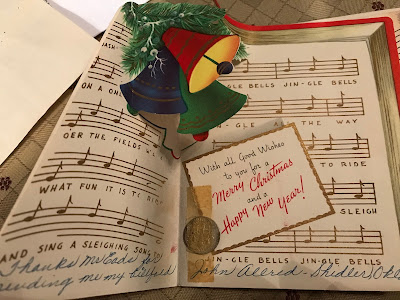 DASH-
ON A O
O'ER THE FIELDS
WHAT FUN IT IS T RI
AND SING A SLEIGHING SONG
GLE BELLS JIN-GLE BELLS
GLE ALL THE WAY
TO RIDE
SLEIGH
JIN-GLE BELLS JIN-GLE BELLS
With all Good Wishes
to you for a
Merry Christmas
and a
Happy New Year!
Thanks Mr Eads for
sending me my billfold
John Allred - Shidler, Okla